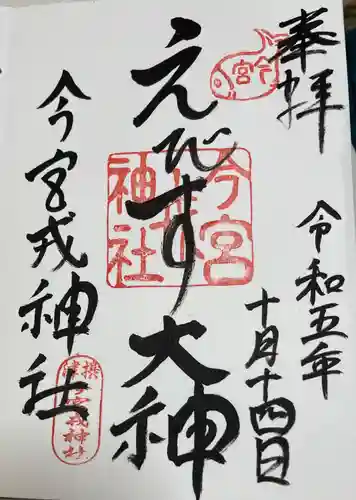 奉拝
令和五年
十月十四日
えびす大神
今宮戎神社
今宮
今宮戎神社